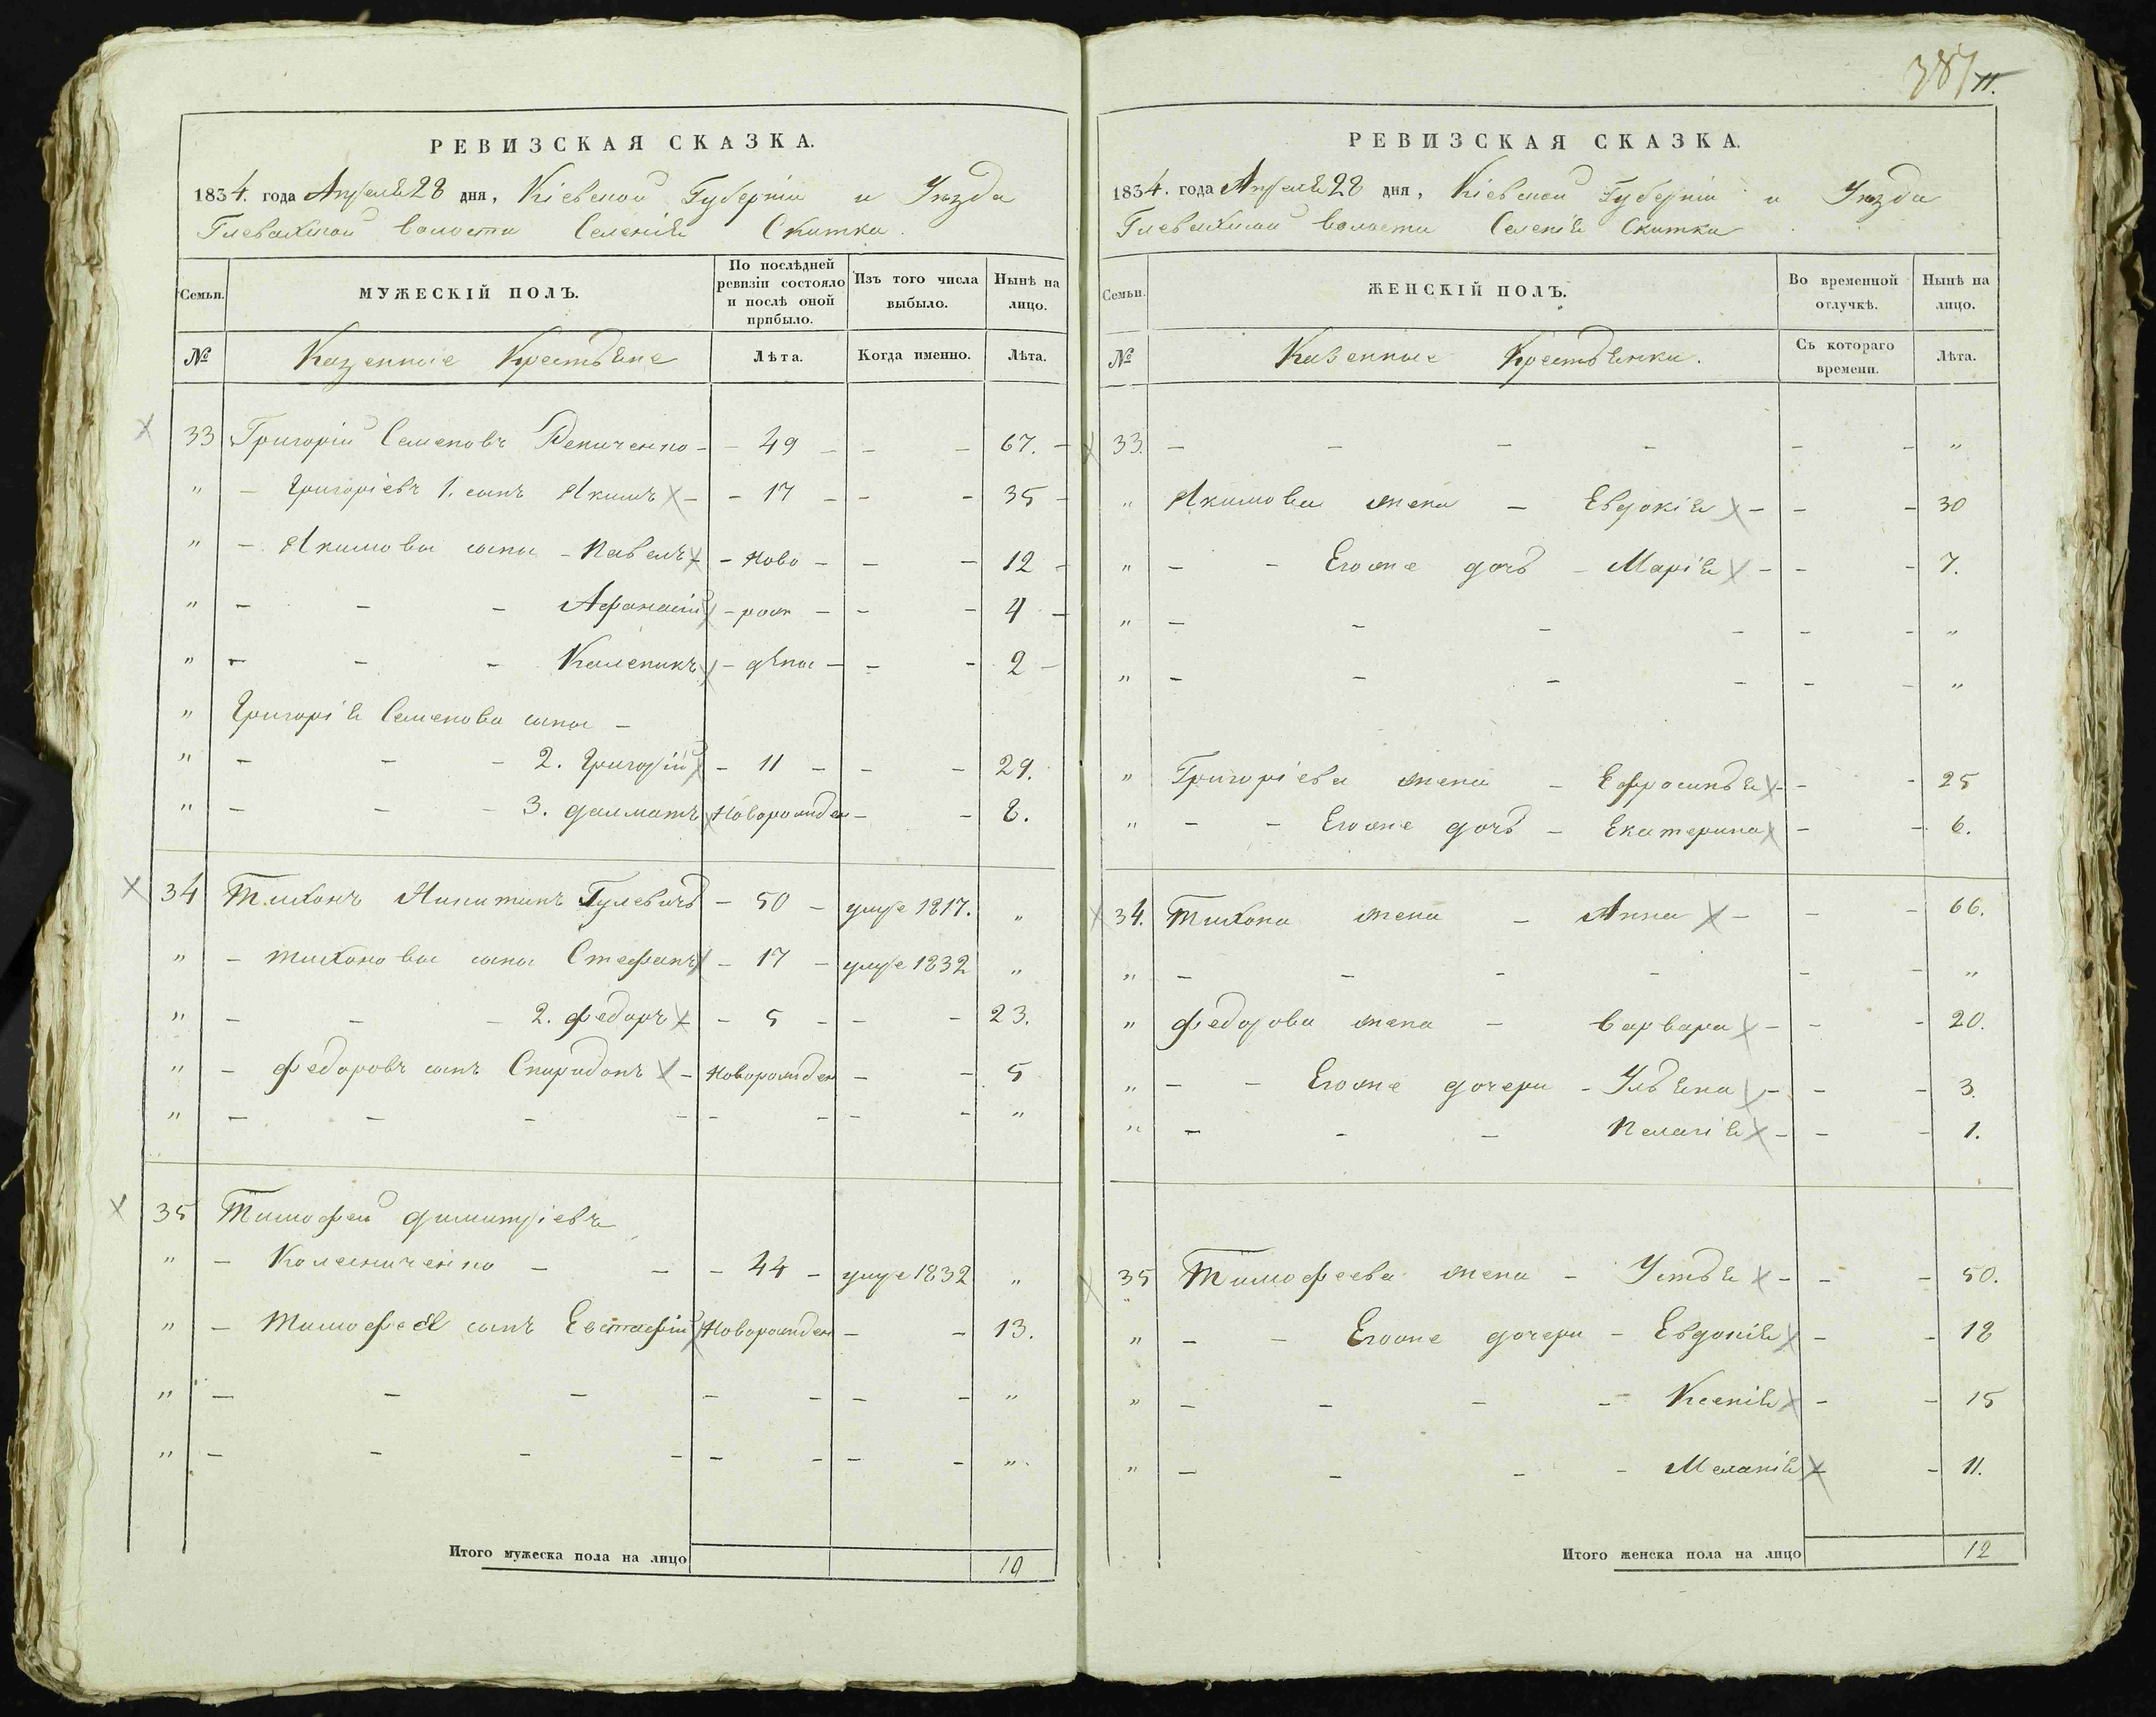 РЕВИЗСКАЯ СКАЗКА.
1834. года Апреля 28 дня, Кіевской Губерніи и Уезда
Глевахской волости Селенія Скитка.
Семьи. МУЖЕСКІЙ ПОЛЪ. По послѣдней ревизіи состояло и послѣ оной прибыло. Изъ того числа выбыло. Нынѣ на лицо.
№ Казенные Крестьяне Лѣта. Когда именно. Лѣта.
33 Григорій Семеновъ - 49 - - - 67. -
" - Григоріевъ 1. сынъ Якимъ - - 17 - - - 35 -
" - Якимовы сыны - Павелъ - Ново - - - 12 -
" - - - Афанасій - рож - - - 4 -
" - - - Каленикъ - дены - - - 2 -
" Григорія Семенова сыны -
" - - - 2. Григорій - 11 - - - 29.
" - - - 3. Далматъ Новорожден - - 8.
34 Тихонъ Никитинъ Гулевичь - 50 - умре 1817. "
" - Тихоновы сыны Стефанъ - 17 - умре 1832 "
" - - - 2. Федоръ - - 5 - - - 23.
" - Федоровъ сынъ Спиридонъ - Новорожден - - 5
" - - - - - - - - "
35 Тимофей Димитріевъ
" - Колесниченко - - - 44 - умре 1832 "
" - Тимофея сынъ Евстафій Новорожден - - 13.
" - - - - - - - "
" - - - - - - - - "
Итого мужеска пола на лицо 10
387 11.
РЕВИЗСКАЯ СКАЗКА.
1834. года Апреля 28 дня, Кіевской Губерніи и Уезда
Глевахской волости Селенія Скитка
Семьи. ЖЕНСКІЙ ПОЛЪ. Во временной отлучкѣ. Нынѣ на лицо.
№ Казенные Крестьянки. Съ котораго времени. Лѣта.
33. - - - - - - "
" Якимова жена - Евдокія - - - 30
" - - Егоже дочь - Марія - - - 7.
" - - - - - - "
" - - - - - - "
" Григоріева жена - Ефросинья - - - 25
" - - Егоже дочь - Екатерина - - 6.
34. Тихона жена - Анна - - - 66.
" - - - - - - "
" Федорова жена - Варвара - - - 20.
" - - Егоже дочери - Ульяна - - - 3.
" - - - Пелагія - - - 1.
35 Тимофеева жена - Устья - - - 50.
" - - Егоже дочери - Евдокія - - 18
" - - - - Ксенія - - 15
" - - - - Меланія - - 11.
Итого женска пола на лицо 12